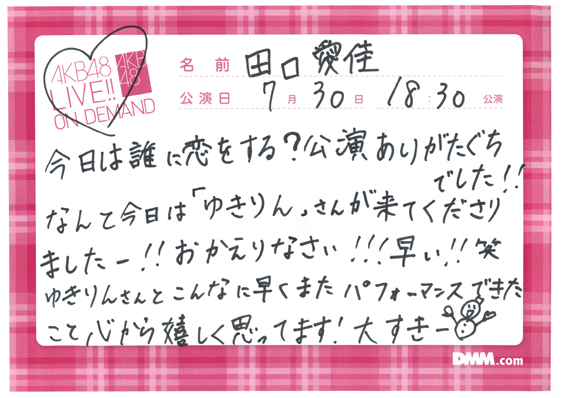 AKB48
LIVE!!
ON DEMAND
AKB
48
名前 田口愛佳
公演日 7月30日 18:30公演
今日は誰に恋をする?公演ありがたぐち
でした!!
なんと今日は「ゆきりん」さんが来てくださり
ましたー!!おかえりなさい!!!早い!!笑
ゆきりんさんとこんなに早くまたパフォーマンスできた
こと心から嬉しく思ってます!大すきー
DMM.com